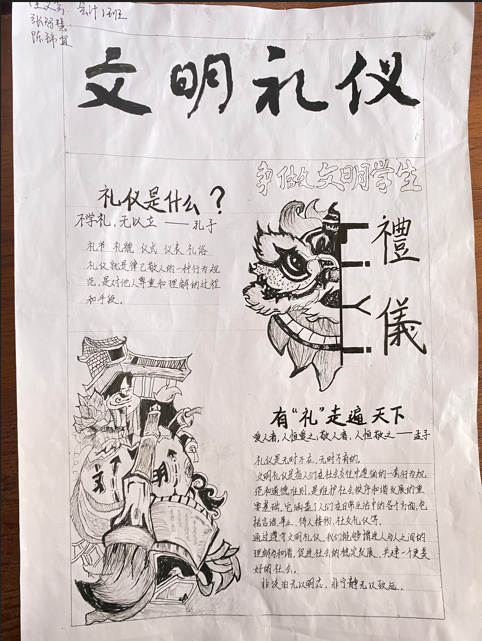 会计1班
文明礼仪
争做文明学生
礼仪是什么？
不学礼，无以立 —— 孔子
礼节 礼貌 仪式 仪表 礼俗
礼仪就是律己敬人的一种行为规
范，是对他人尊重和理解的过程
和手段。
禮
儀
LI
YI
有“礼”走遍天下
爱人者，人恒爱之，敬人者，人恒敬之 —— 孟子
礼仪是无时不在，无时不有的。
文明礼仪是指人们在社会交往中遵循的一套行为规
范和道德准则，是维护社会秩序和谐发展的重
要基础，它涵盖了人们在日常生活中的各个方面，包
括言谈举止、待人接物、社交礼仪等。
通过遵守文明礼仪，我们能够增进人与人之间的
理解与和谐，促进社会的稳定发展，共建一个更美
好的社会。
非淡泊无以明志，非宁静无以致远。